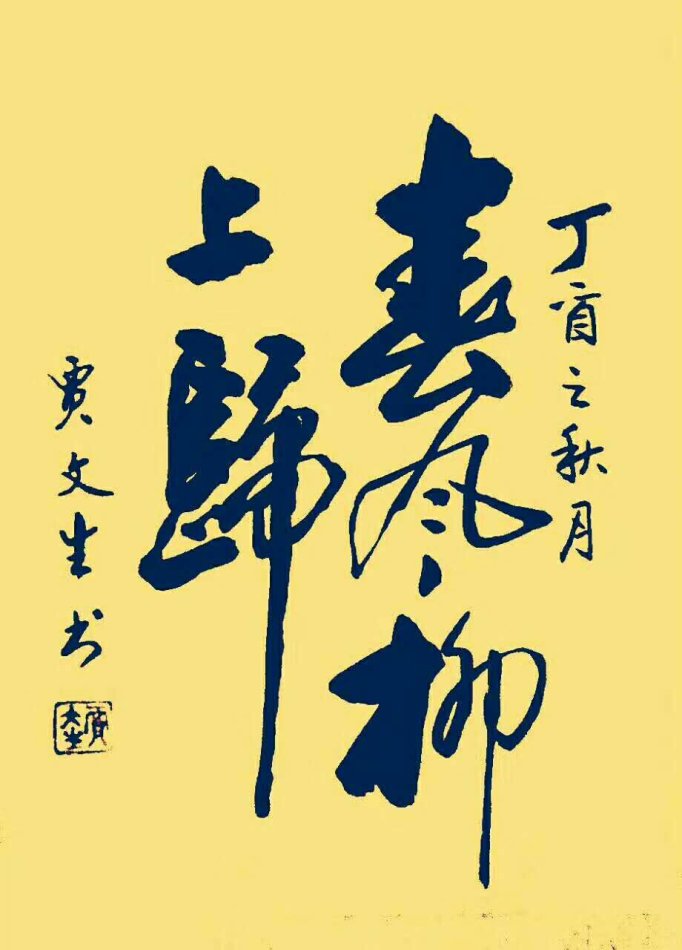 丁酉之秋月
春風柳
上歸
贾文生书